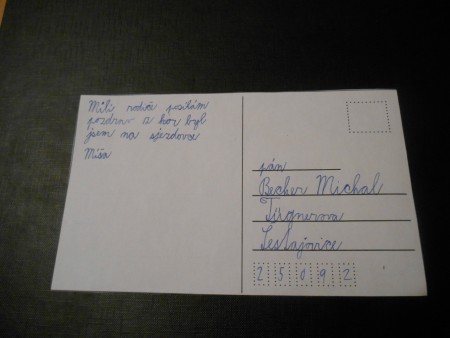 Milí rodiče posílám
pozdrav z hor byl
jsem na sjezdovce
Míša
pán
Becher Michal
Tignerova
Šestajovice
25092